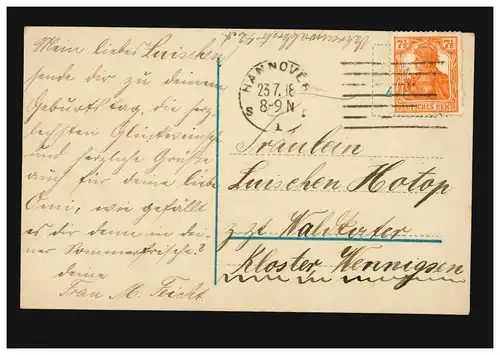 Mein liebes Luischen
sende dir zu deinem
Geburtstag, die herz-
lichsten Glückwünsche
und herzliche Grüße
auch für deine liebe
Omi, wie gefällt
es dir denn in dei-
ner Sommerfrische?
deine
Frau M. Feicht.
HANNOVER
23.7.18
8-9 N
S
1
7½ 7½
DEUTSCHES REICH
Fräulein
Luischen Hotop
z. Zt.
Kloster Wennigsen